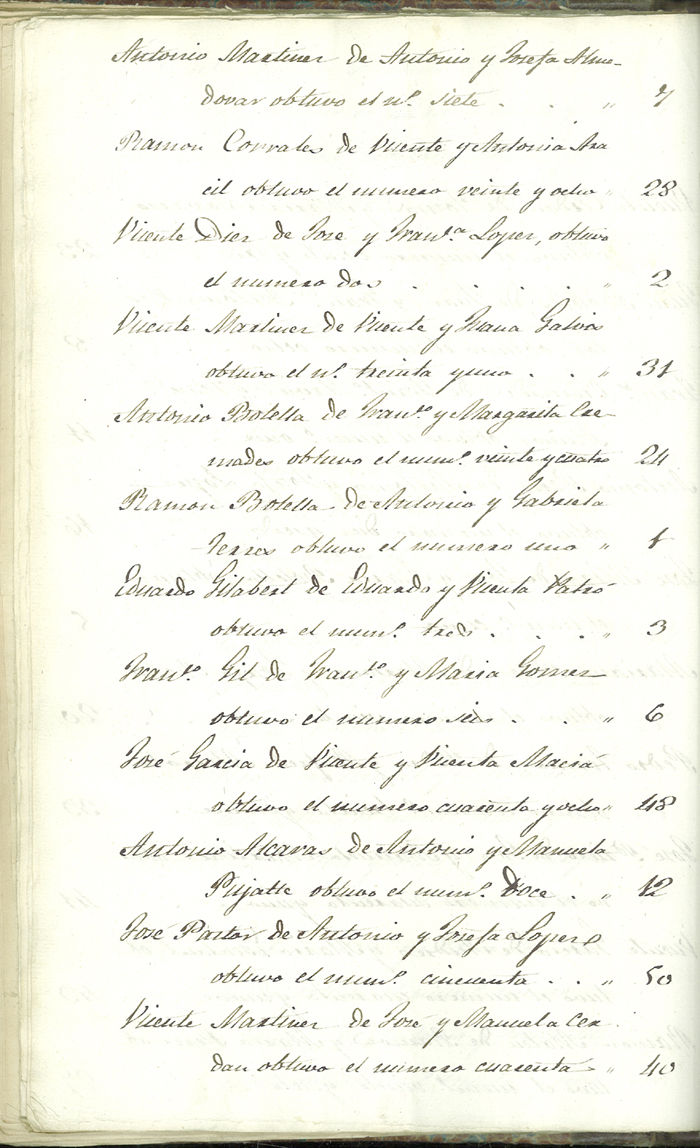 Antonio Martinez de Antonio y Josefa Alme-
dovar obtuvo el nº. siete . . " 7
Ramon Corrales de Vicente y Antonia Ara
cil obtuvo el numero veinte y ocho " 28
Vicente Diez de Jose y Franᶜᵃ Lopez, obtuvo
el numero dos . . . . " 2
Vicente Martinez de Vicente y Juana Galvañ
obtuvo el nº. treinta y uno . . " 31
Antonio Botella de Franᶜᵒ y Margarita Cre-
mades obtuvo el numº. veinte y cuatro 24
Ramon Botella de Antonio y Gabriela
obtuvo el numero uno " 1
Eduardo Gilabert de Eduardo y Vicenta
obtuvo el numº. tres . . . " 3
Franᶜᵒ Gil de Franᶜᵒ y Maria Gomez
obtuvo el numero seis . . " 6
José Garcia de Vicente y Vicenta Maciá
obtuvo el numero cuarenta y ocho " 48
Antonio Alcaras de Antonio y Manuela
Pujalte obtuvo el numº. Doce . " 12
José Pastor de Antonio y Josefa Lopez
obtuvo el numº. cincuenta . . " 50
Vicente Martinez de José y Manuela Cer
dan obtuvo el numero cuarenta " 40